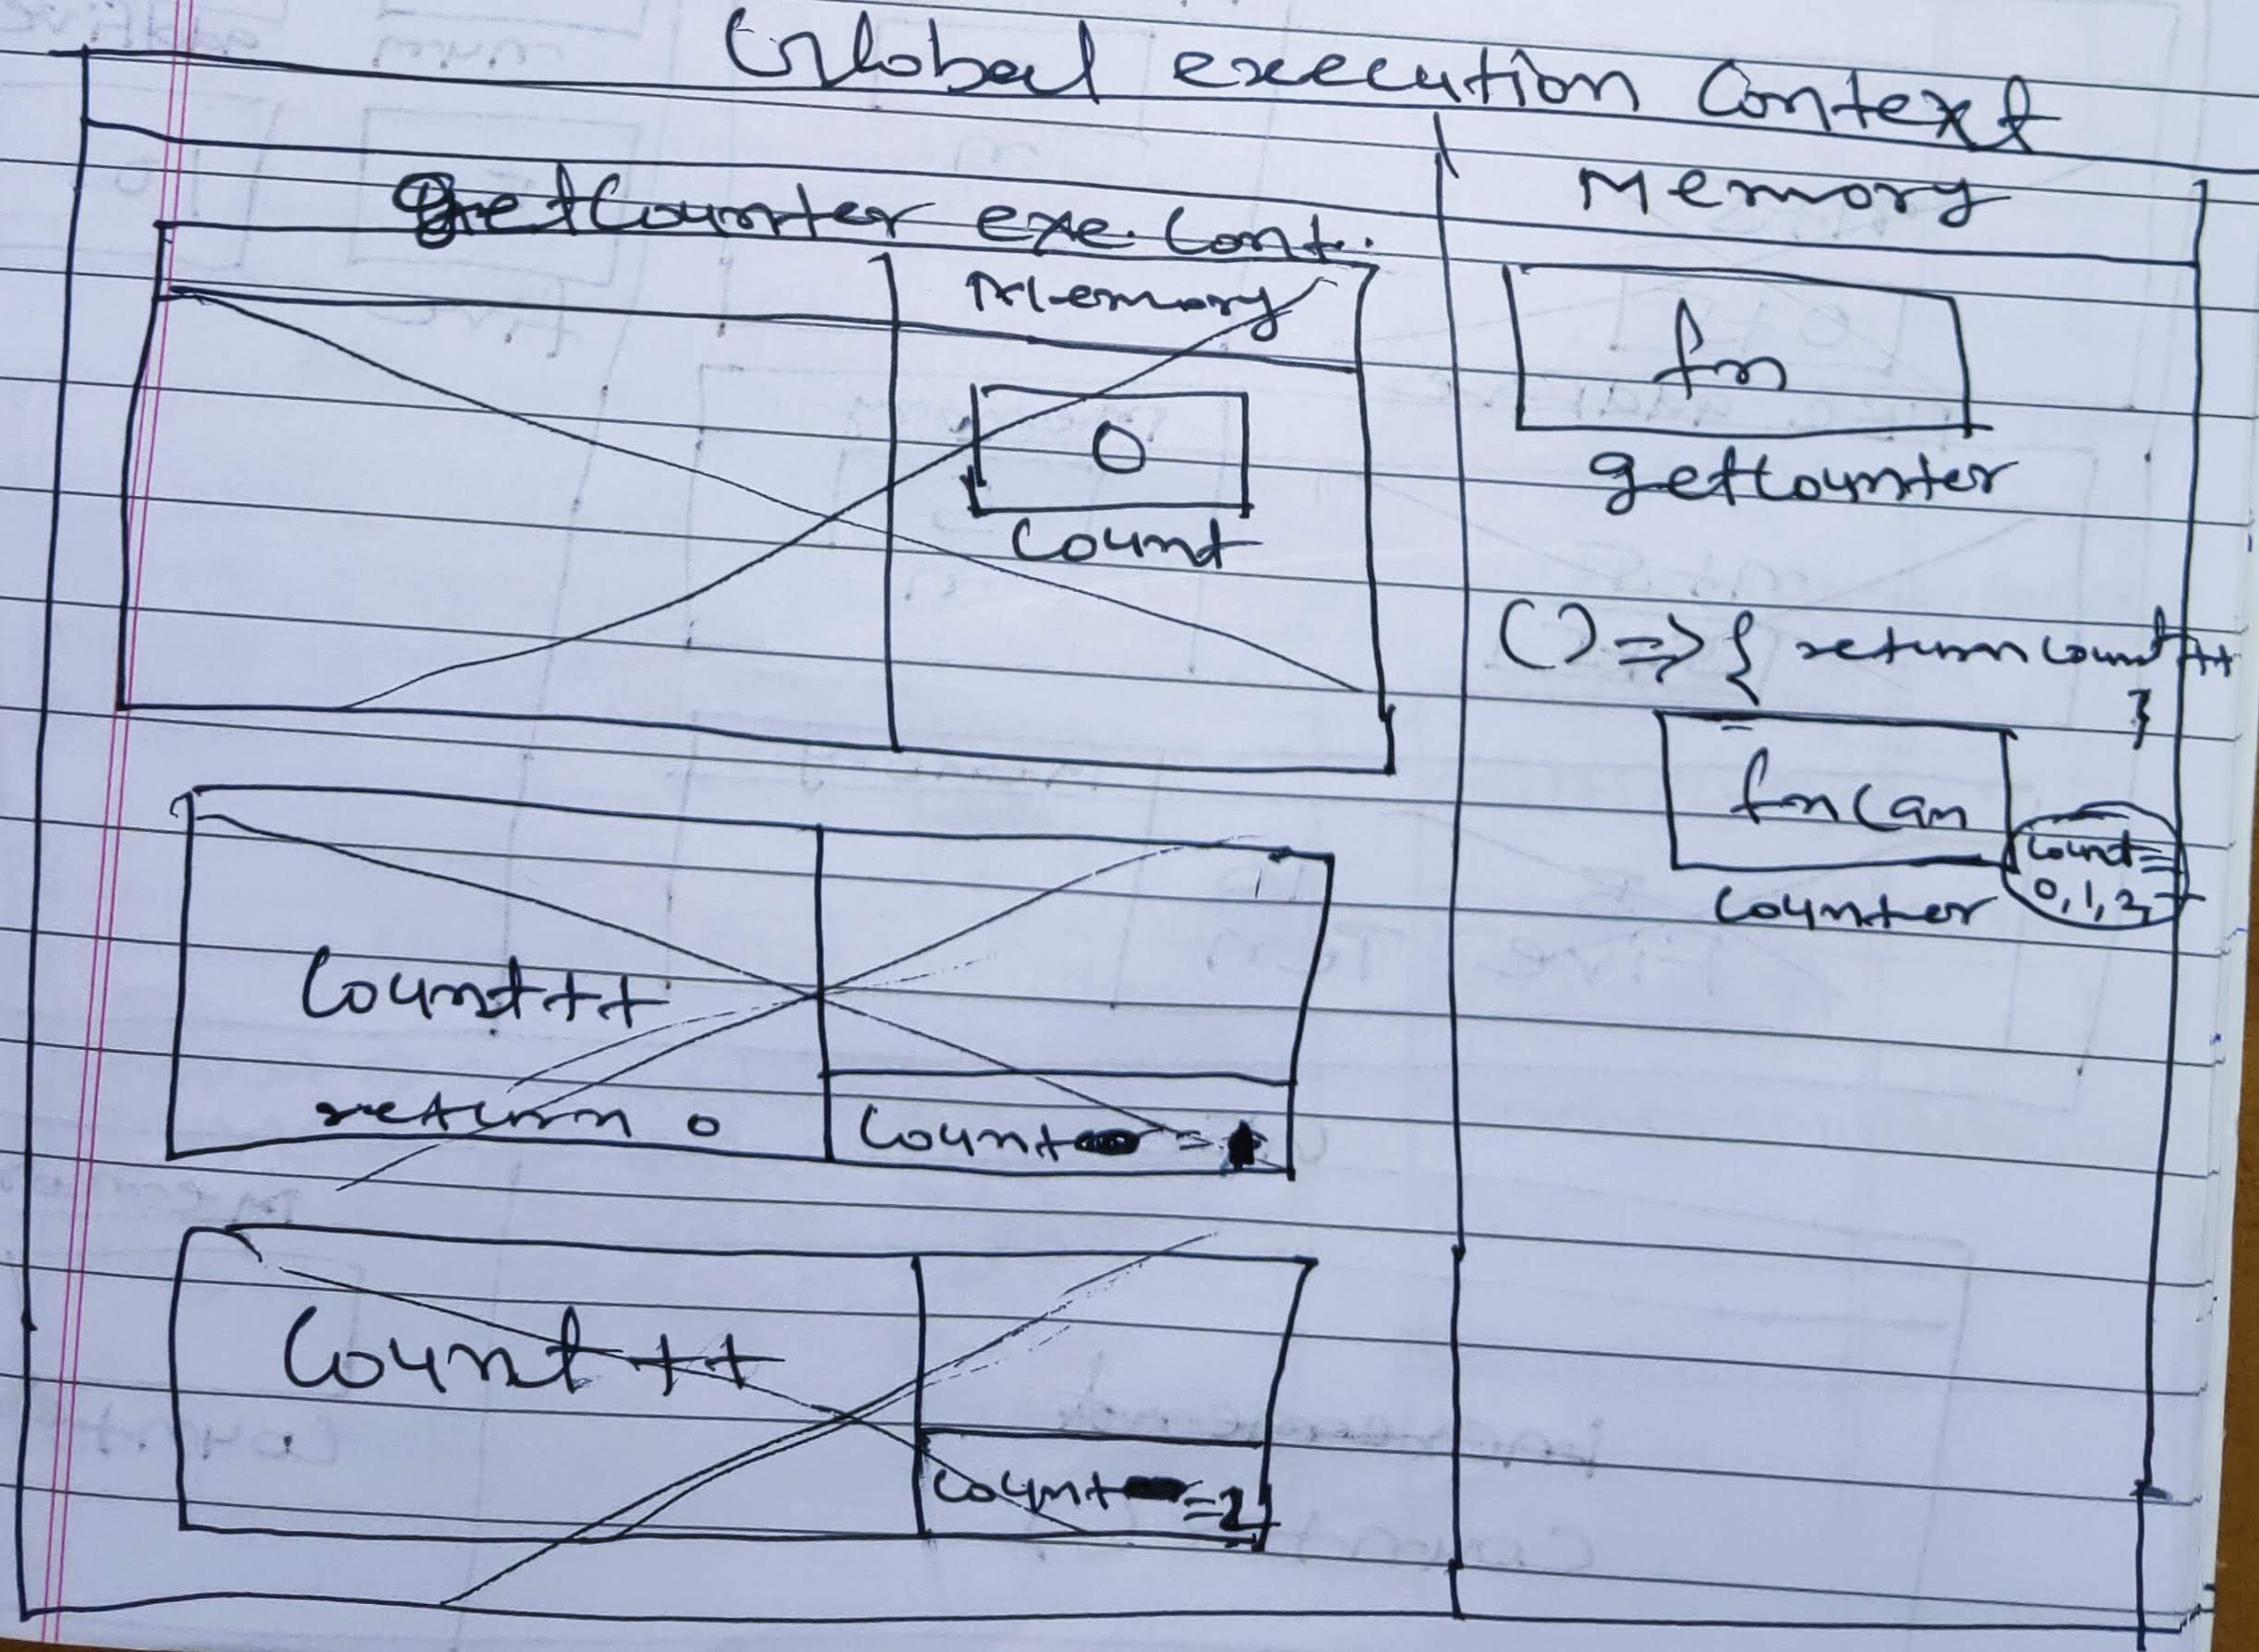 Global execution Context
getCounter exe. Cont.
Memory
0
Count
Count++
return 0
Count =
Count++
Count =2
Memory
fn
getCounter
() => { return count++
}
fn can
Counter
Count=
0, 1, 2